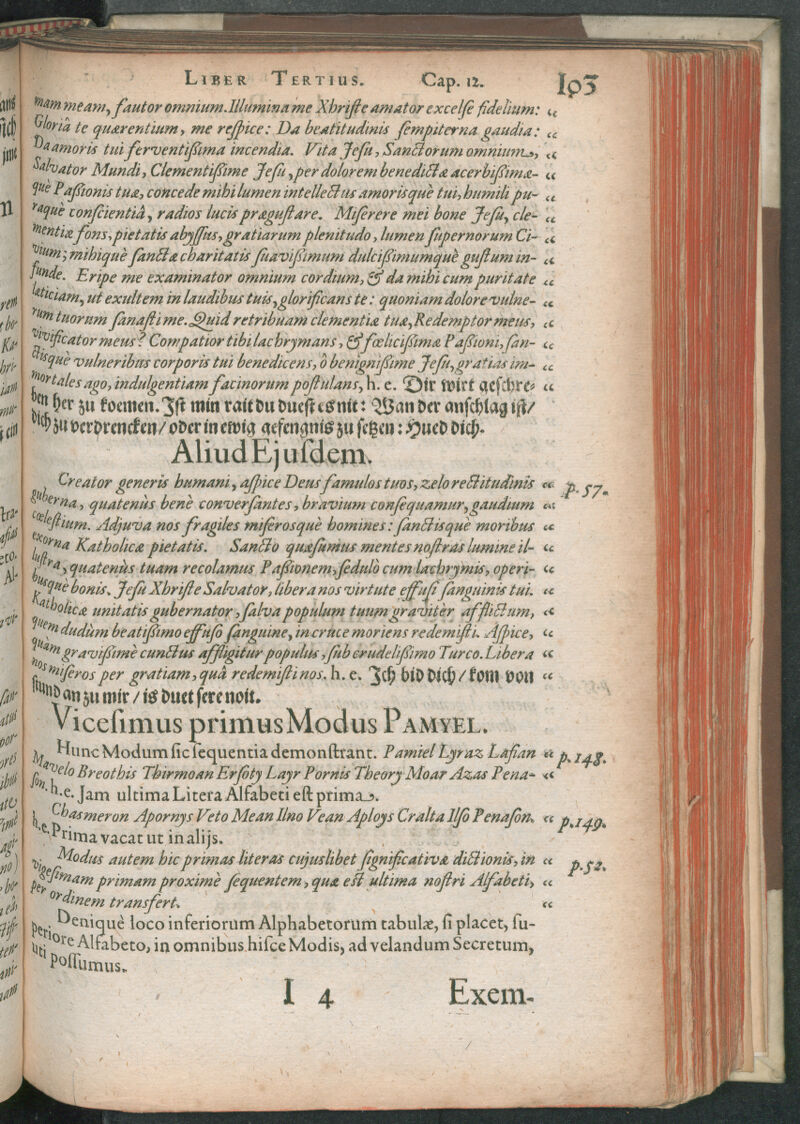 LIBER TERTIUS. Cap. 12. 103
mam meam, fautor omnium. Illumina me Xhriſte amator excelſe fidelium: “
Gloria te quærentium, me reſpice: Da beatitudinis ſempiterna gaudia: “
Da amoris tui ferventißima incendia. Vita Jeſu, Sanctorum omnium, “
Salvator Mundi, Clementißime Jeſu, per dolorem benedictæ acerbißimæ- “
què Paßionis tuæ, concede mihi lumen intellectus amorisquè tui, humili pu- “
raquè conſcientiâ, radios lucis præguſtare. Miſerere mei bone Jeſu, cle- “
mentiæ fons, pietatis abyſſus, gratiarum plenitudo, lumen ſupernorum Ci- “
vium; mihiquè ſanctæ charitatis ſuavißimum dulcißimumquè guſtum in- “
funde. Eripe me examinator omnium cordium, & da mihi cum puritate “
læticiam, ut exultem in laudibus tuis, glorificans te: quoniam dolore vulne- “
rum tuorum ſanaſti me. Quid retribuam clementiæ tuæ, Redemptor meus, “
vivificator meus? Compatior tibi lachrymans, & fœlicißimæ Paßioni, ſan- “
ctisquè vulneribus corporis tui benedicens, ô benignißime Jeſu, gratias im- “
mortales ago, indulgentiam facinorum poſtulans, h. e. Dir wirt geſchre- “
ben her zu koemen. Iſt min rait du dueſt es nit: Wan der anſchlag iſt/
dich zu verdrencken/ oder in ewig gefengnis zu ſetzen: Hued dich.
Aliud Ejuſdem.
Creator generis humani, aſpice Deus famulos tuos, zelo rectitudinis “ p. 57.
guberna, quatenùs benè converſantes, bravium conſequamur, gaudium “
cœleſtium. Adjuva nos fragiles miſerosquè homines: ſanctisquè moribus “
exorna Katholicæ pietatis. Sancto quæſumus mentes noſtras lumine il- “
luſtra, quatenùs tuam recolamus Paßionem, ſedulò cum lachrymis, operi- “
busquè bonis. Jeſu Xhriſte Salvator, libera nos virtute effuſi ſanguinis tui. “
Katholicæ unitatis gubernator, ſalva populum tuum graviter afflictum, “
quem dudùm beatißimo effuſo ſanguine, in cruce moriens redemiſti. Aſpice, “
quàm gravißimè cunctus affligitur populus, ſub crudelißimo Turco. Libera “
nos miſeros per gratiam, quâ redemiſti nos. h. e. Ich bid dich/ kom von “
ſtund an zu mir / is duet ſere noit.
Viceſimus primus Modus PAMYEL.
Hunc Modum ſic ſequentia demonſtrant. Pamiel Lyraz Laſian “ p. 148.
Mavelo Breothis Thirmoan Erſoty Layr Pornis Theory Moar Azas Pena- “
ſon. h.e. Jam ultima Litera Alfabeti eſt prima.
Chasmeron Apornys Veto Mean Ilno Vean Aploys Cralta Ilſo Penaſon. “ p. 149.
h.e. Prima vacat ut in alijs.
Modus autem hic primas literas cujuslibet ſignificativæ dictionis, in “ p. 52.
vigeſimam primam proximè ſequentem, quæ eſt ultima noſtri Alfabeti, “
per ordinem transfert. “
Deniquè loco inferiorum Alphabetorum tabulæ, ſi placet, ſu-
periore Alfabeto, in omnibus hiſce Modis, ad velandum Secretum,
uti poſſumus.
I 4 Exem-